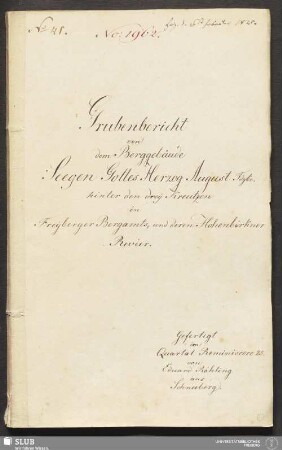 No. 1962.
Grubenbericht
von
dem Berggebäude
Seegen Gottes Herzog August Fdgr.
hinter den drey Kreutzen
in
Freyberger Bergamts, und deren Hohenbirkner
Revier.
Gefertigt
im
Quartal Reminiscere
von
Eduard
aus
Schneeberg.
SLUB
Wir führen Wissen.
UNIVERSITÄTSBIBLIOTHEK
FREIBERG